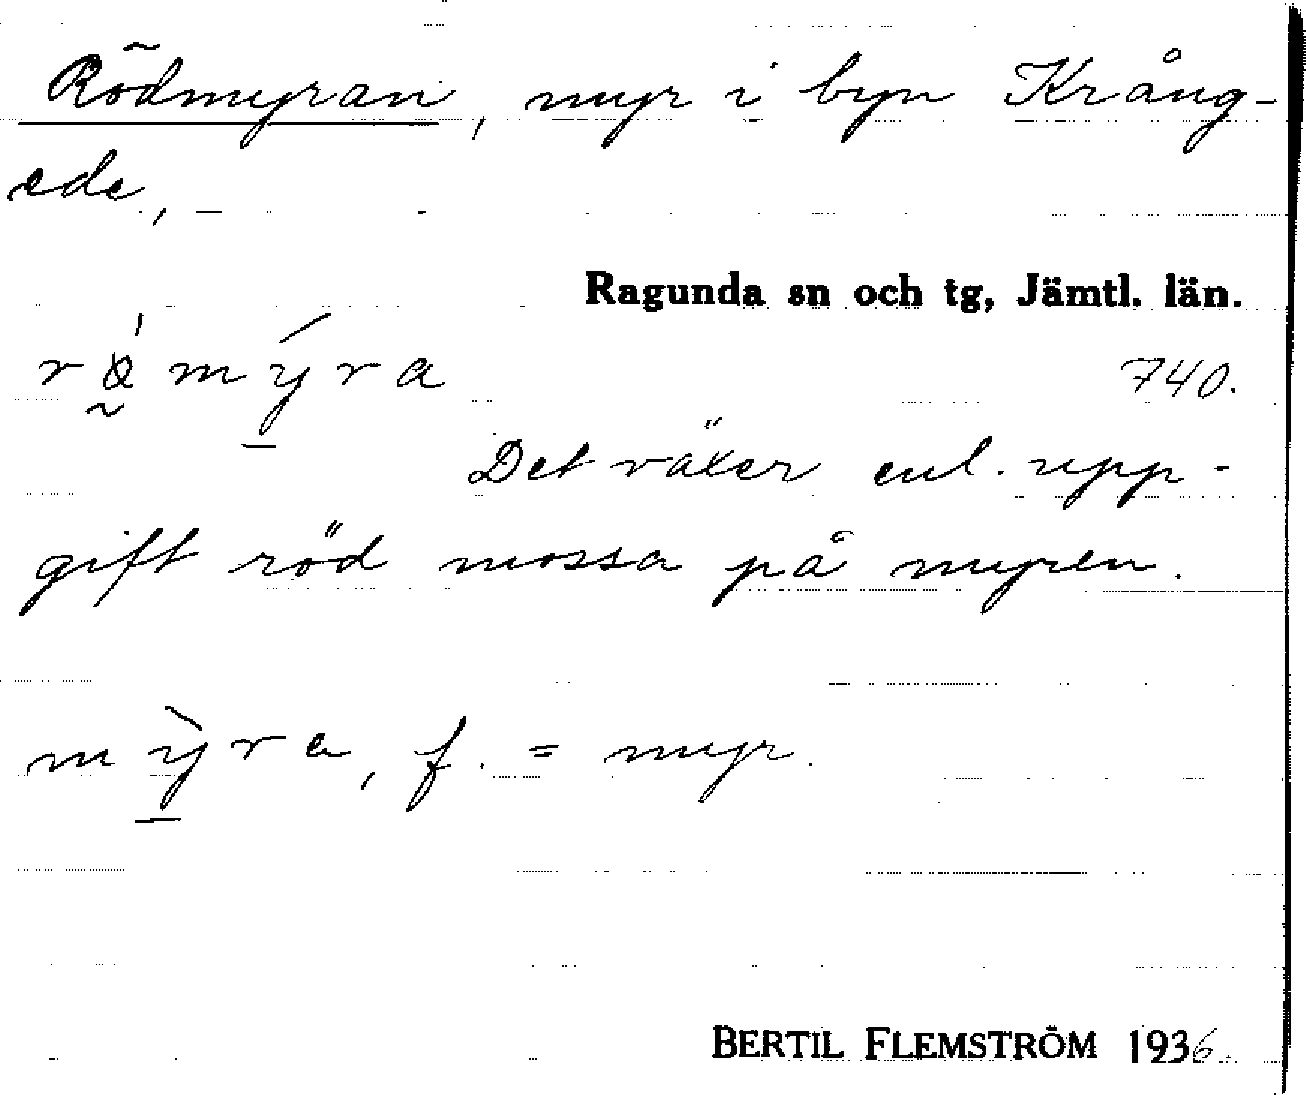 Rödmyran, myr i byn Krång-
ede,
Ragunda sn och tg, Jämtl. län.
740.
Det växer enl. upp-
gift röd mossa på myren.
mỳra, f. = myr.
BERTIL FLEMSTRÖM 1936.